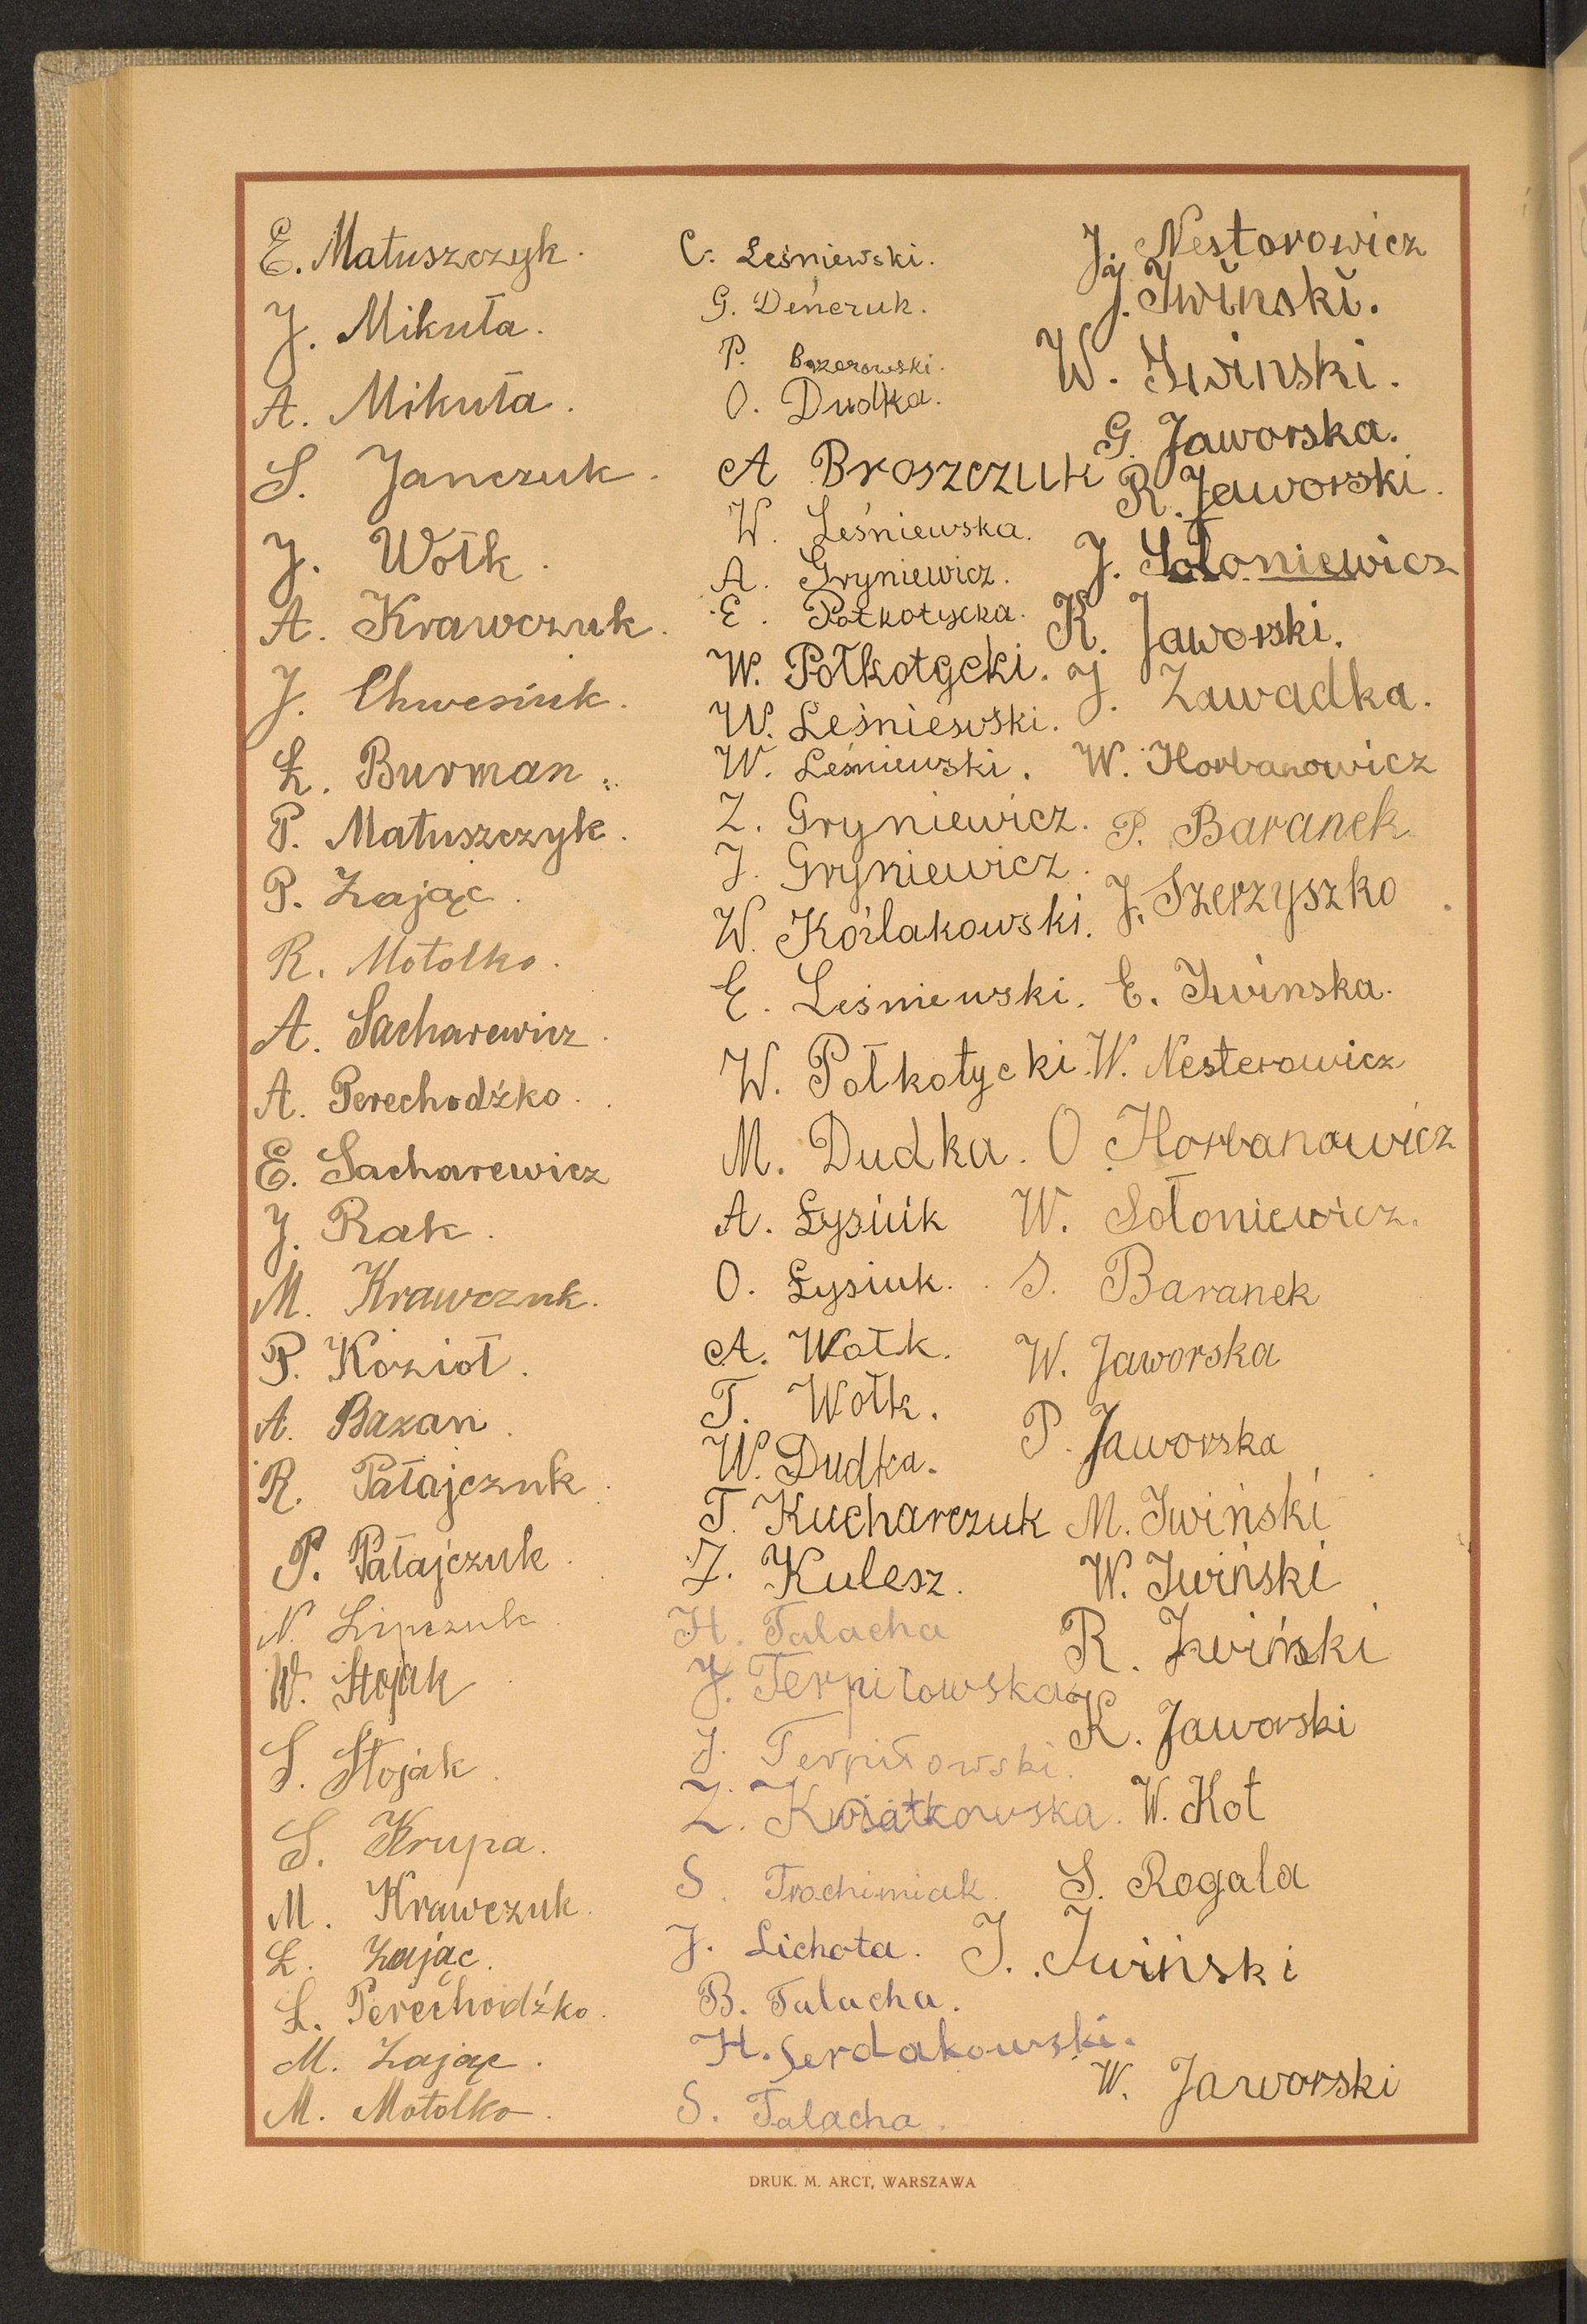 E. Matuszczyk.
J. Mikuła.
A. Mikuła.
S. Janczuk.
J. Wołk.
A. Krawczuk.
J. Chwesiuk.
Ł. Burman.
P. Matuszczyk.
P. Zając.
R. Motolko.
A. Sacharewicz.
A. Perechodźko.
E. Sacharewicz
J. Rak.
M. Krawczuk.
P. Kozioł.
A. Bazan.
R. Patajczuk.
P. Patajczuk.
N. Lipczuk.
W. Stojak.
S. Stojak.
S. Krupa.
M. Krawczuk.
Ł. Zając.
Ł. Perechodźko.
M. Zając.
M. Motolko.
C. Leśniewski.
G. Deńczuk.
P.
O. Dudka.
A Broszczuk
W. Leśniewska.
A. Gryniewicz.
E. Połkotycka.
W. Połkotycki.
W. Leśniewski.
W. Leśniewski.
Z. Gryniewicz.
J. Gryniewicz.
W. Koźlakowski.
E. Leśniewski.
W. Połkotycki.
M. Dudka.
A. Łysiuk
O. Łysiuk.
A. Wołk.
T. Wołk.
W. Dudka.
T. Kucharczuk
Z. Kulesz.
H. Talacha
J. Terpiłowska
J. Terpiłowski.
Z. Kwiatkowska.
S. Trochimiak.
J. Lichota.
B. Talacha.
H. Serdakowski.
S. Talacha.
J. Nestorowicz
J. Iwiński.
W. Iwinski.
G. Jaworska.
R. Jaworski.
J. Sołoniewicz
K. Jaworski.
J. Zawadka.
W. Horbanowicz
P. Baranek
J. Szerzyszko.
E. Iwinska.
W. Nesterowicz
O. Horbanowicz
W. Sołoniewicz.
S. Baranek
W. Jaworska
P. Jaworska
M. Iwiński
W. Iwiński
R. Iwiński
K. Jaworski
W. Kot
S. Rogala
J. Iwiński
W. Jaworski
DRUK. M. ARCT, WARSZAWA